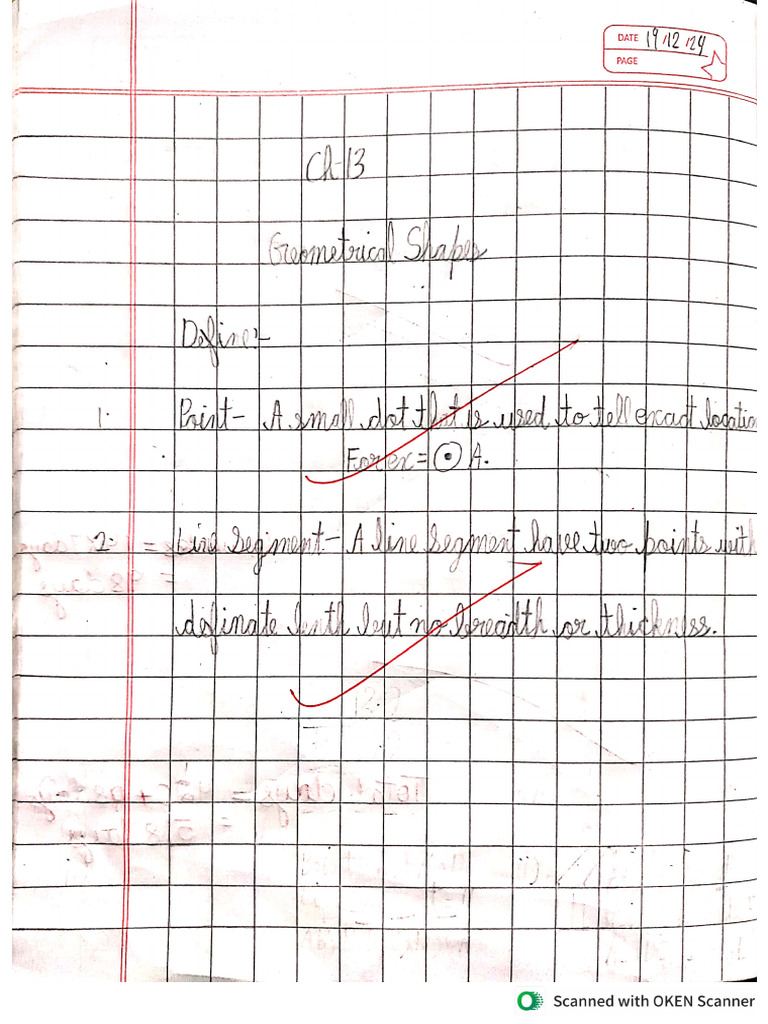 DATE 19/12/24
PAGE
Ch-13
Geometrical Shapes
Define:-
1. Point- A small dot that is used to tell exact locatio
For ex = A.
2. Line Segment- A line segment have two points with
definate lenth but no breadth or thickness.
Scanned with OKEN Scanner